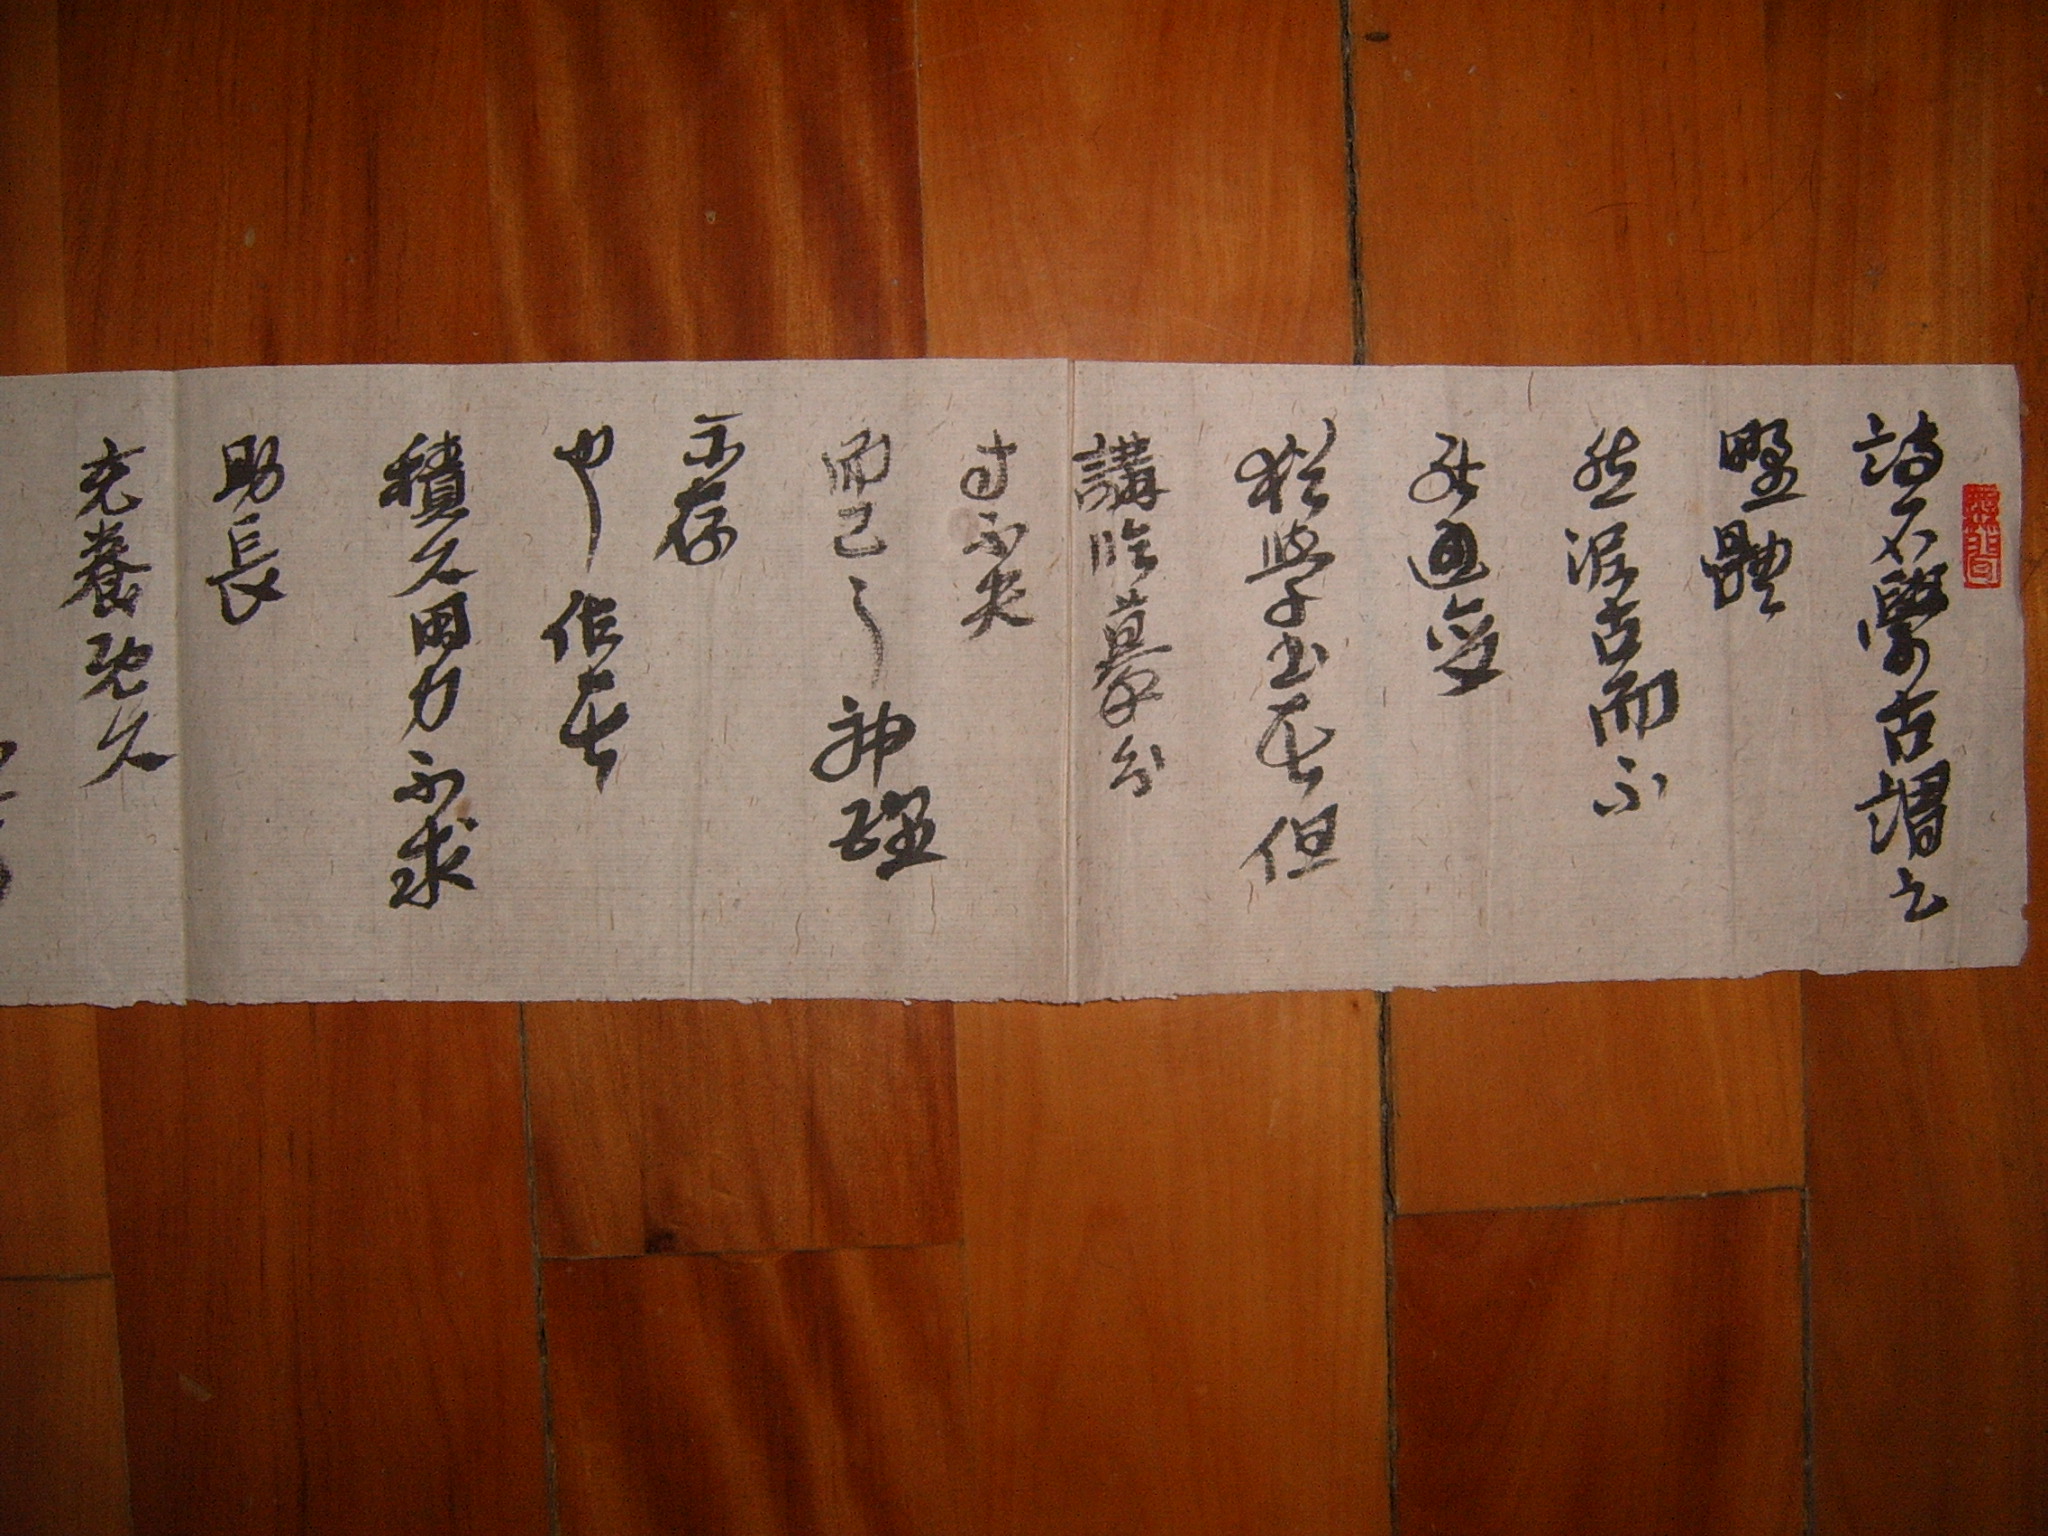 詩不學古謂之
野體
然泥古而不
能通變
猶學書者但
講臨摹分
寸不失
而已之神理
不存
也作者
積久用力不求
助長
充養既久